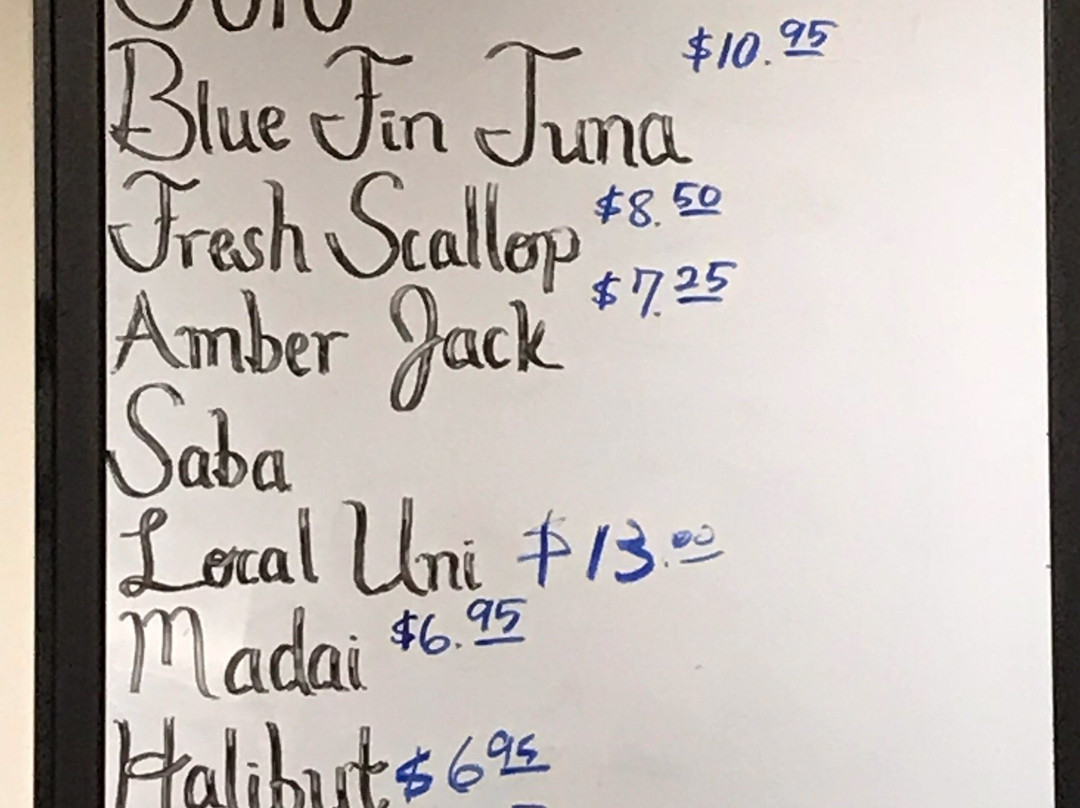 Blue Fin Tuna $10.95
Fresh Scallop $8.50
Amber Jack $7.25
Saba
Local Uni $13.00
Madai $6.95
Halibut $6.95